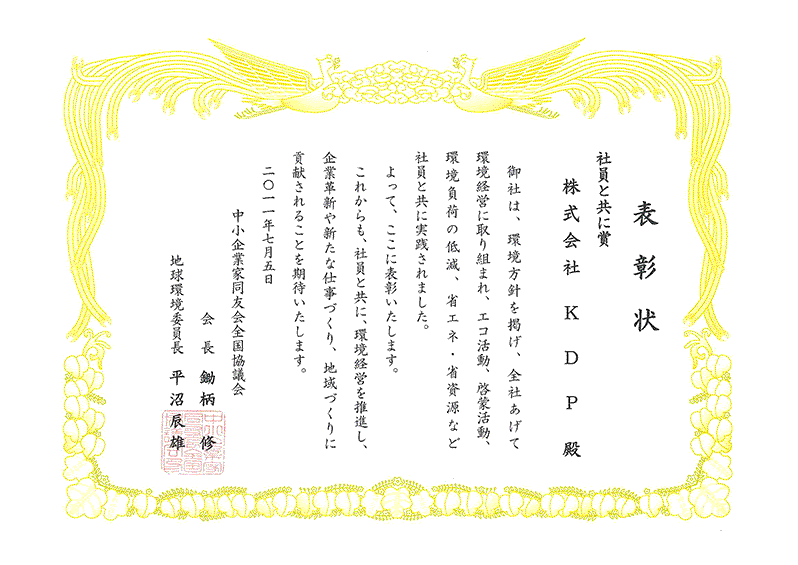 表彰状
社員と共に賞
株式会社 KDP 殿
御社は、環境方針を掲げ、全社あげて
環境経営に取り組まれ、エコ活動、啓蒙活動、
環境負荷の低減、省エネ・省資源など
社員と共に実践されました。
よって、ここに表彰いたします。
これからも、社員と共に、環境経営を推進し、
企業革新や新たな仕事づくり、地域づくりに
貢献されることを期待いたします。
二〇一一年七月五日
中小企業家同友会全国協議会
会長 鋤柄 修
地球環境委員長 平沼辰雄